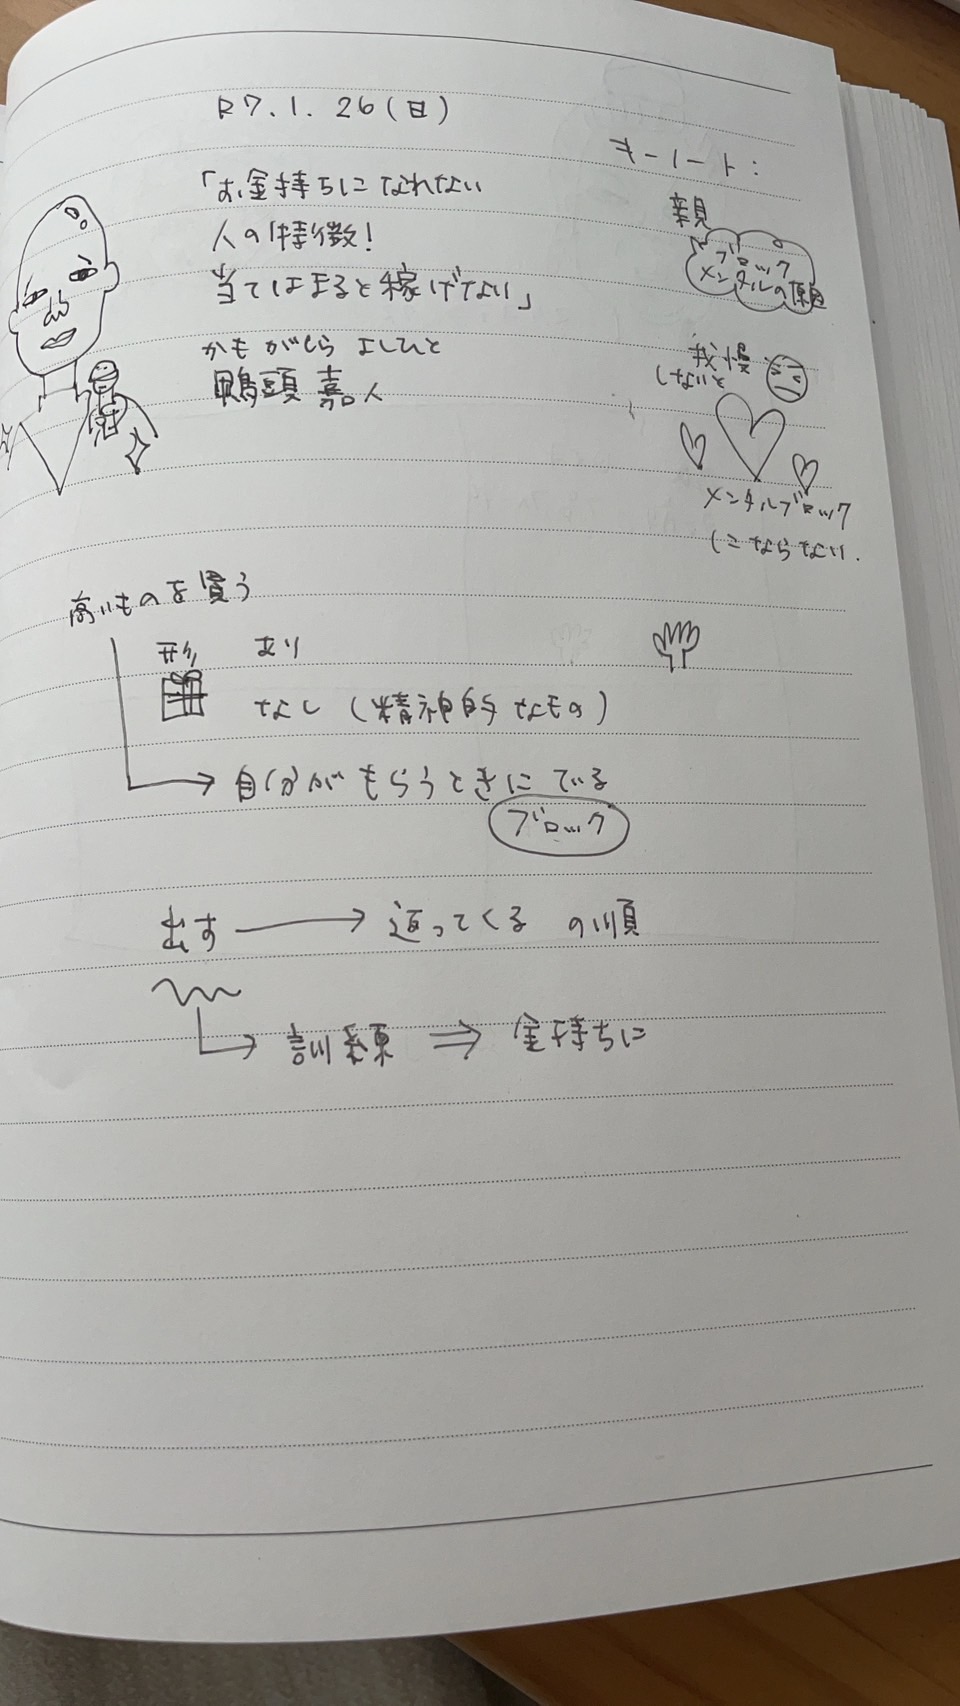 R7.1.26(日)
「お金持ちになれない
人の特徴!
当てはまると稼げない」
かもがしら よしひと
鴨頭 嘉人
キーノート:
親
ブロック
メンタルの原因
我慢
しないと
メンタルブロック
にならない.
高いものを買う
形 あり
なし (精神的なもの)
自分がもらうときにでる
ブロック
出す → 返ってくる の順
訓練 ⇒ 金持ちに